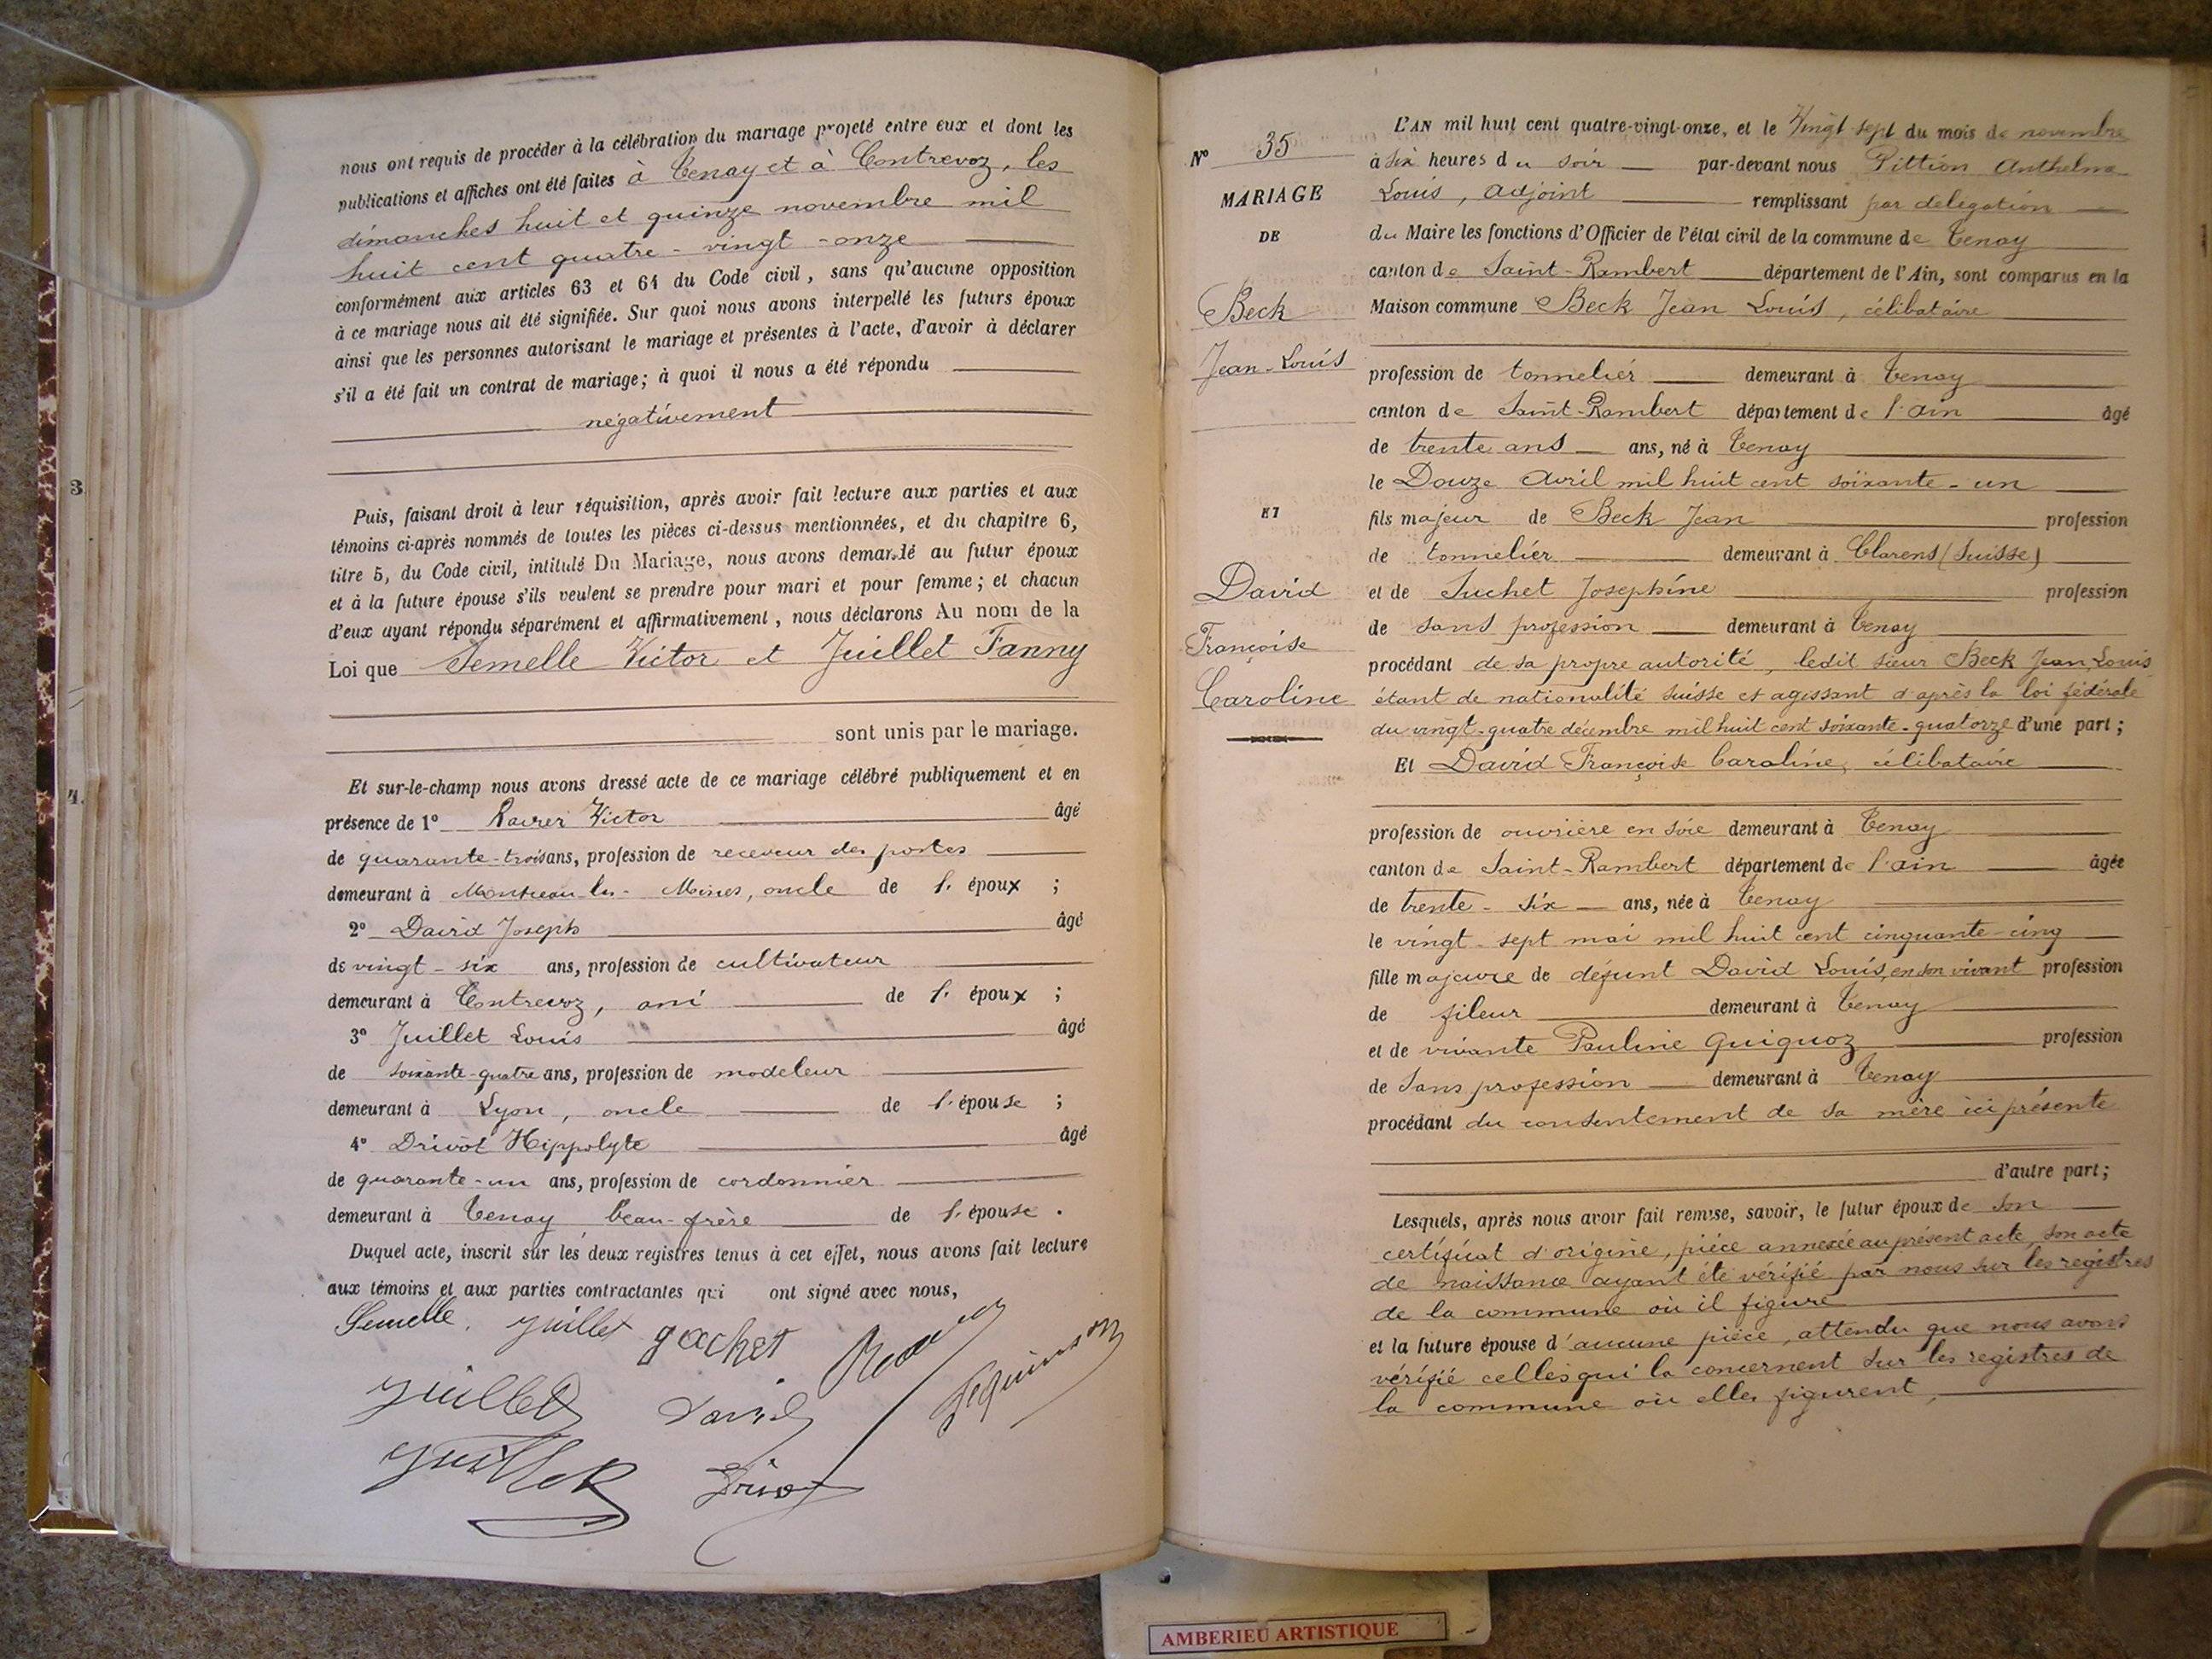 nous ont requis de procéder à la célébration du mariage projeté entre eux et dont les
publications et affiches ont été faites à Tenay et à Contrevoz, les
dimanches huit et quinze novembre mil
huit cent quatre-vingt-onze
conformément aux articles 63 et 64 du Code civil, sans qu'aucune opposition
à ce mariage nous ait été signifiée. Sur quoi nous avons interpellé les futurs époux
ainsi que les personnes autorisant le mariage et présentes à l'acte, d'avoir à déclarer
s'il a été fait un contrat de mariage; à quoi il nous a été répondu
négativement
Puis, faisant droit à leur réquisition, après avoir fait lecture aux parties et aux
témoins ci-après nommés de toutes les pièces ci-dessus mentionnées, et du chapitre 6,
titre 5, du Code civil, intitulé Du Mariage, nous avons demandé au futur époux
et à la future épouse s'ils veulent se prendre pour mari et pour femme; et chacun
d'eux ayant répondu séparément et affirmativement, nous déclarons Au nom de la
Loi que Semelle Victor et Juillet Fanny
sont unis par le mariage.
Et sur-le-champ nous avons dressé acte de ce mariage célébré publiquement et en
présence de 1° Victor âgé
de quarante-trois ans, profession de receveur des postes
demeurant à Montceau-les-Mines, oncle de l' époux ;
2° David Joseph âgé
de vingt-six ans, profession de cultivateur
demeurant à Contrevoz, ami de l' époux ;
3° Juillet Louis âgé
de soixante-quatre ans, profession de modeleur
demeurant à Lyon, oncle de l' épouse ;
4° Drivot Hippolyte âgé
de quarante-un ans, profession de cordonnier
demeurant à Tenay beau-frère de l' épouse .
Duquel acte, inscrit sur les deux registres tenus à cet effet, nous avons fait lecture
aux témoins et aux parties contractantes qui ont signé avec nous,
Semelle. Juillet gachet
Juillet David
Juillet Drivot
3.
4.
N° 35
MARIAGE
DE
Beck
Jean-Louis
ET
David
Françoise
Caroline
L'AN mil huit cent quatre-vingt-onze, et le Vingt sept du mois de novembre
à six heures du soir par-devant nous Pittion Anthelme
Louis, adjoint remplissant par délégation
du Maire les fonctions d'Officier de l'état civil de la commune de Tenay
canton de Saint-Rambert département de l'Ain, sont comparus en la
Maison commune Beck Jean Louis, célibataire
profession de tonnelier demeurant à Tenay
canton de Saint-Rambert département de l'ain âgé
de trente ans ans, né à Tenay
le Douze avril mil huit cent soixante-un
fils majeur de Beck Jean profession
de tonnelier demeurant à Clarens (Suisse)
et de Suchet Josephine profession
de sans profession demeurant à Tenay
procédant de sa propre autorité, ledit sieur Beck Jean-Louis
étant de nationalité suisse et agissant d'après la loi fédérale
du vingt-quatre décembre mil huit cent soixante-quatorze d'une part;
Et David Françoise Caroline, célibataire
profession de ouvrière en soie demeurant à Tenay
canton de Saint-Rambert département de l'ain âgée
de trente-six ans, née à Tenay
le vingt-sept mai mil huit cent cinquante-cinq
fille majeure de défunt David Louis, en son vivant profession
de fileur demeurant à Tenay
et de vivante Pauline Guiguoz profession
de sans profession demeurant à Tenay
procédant du consentement de sa mère ici présente
d'autre part;
Lesquels, après nous avoir fait remise, savoir, le futur époux de son
certificat d'origine, pièce annexée au présent acte, son acte
de naissance ayant été vérifié par nous sur les registres
de la commune où il figure
et la future épouse d'aucune pièce, attendu que nous avons
vérifié celles qui la concernent sur les registres de
la commune où elles figurent,
AMBERIEU ARTISTIQUE